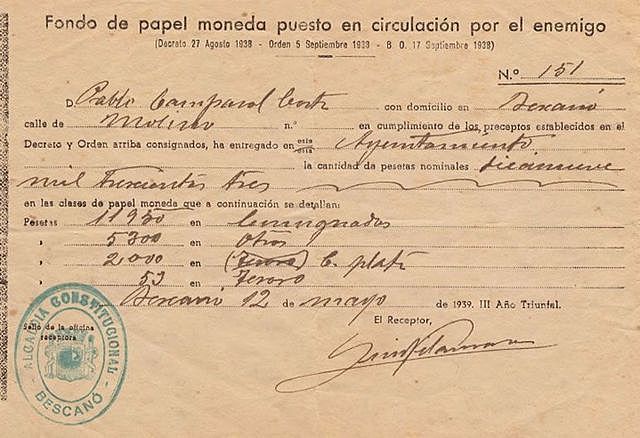 Fondo de papel moneda puesto en circulación por el enemigo
(Decreto 27 Agosto 1938 - Orden 5 Septiembre 1938 - B O. 17 Septiembre 1938)
N.º 151
D. Pablo con domicilio en Bescanó
calle de Molino n.º en cumplimiento de los preceptos establecidos en el
Decreto y Orden arriba consignados, ha entregado en este Ayuntamiento
la cantidad de pesetas nominales diecinueve
mil trescientas tres
en las clases de papel moneda que a continuación se detallan:
Pesetas 11950 en
» 5300 en Otros
» 2,000 en (Tesoro) C. plata
» 53 en Tesoro
Bescanó 12 de mayo de 1939. III Año Triunfal.
El Receptor,
Sello de la oficina
receptora
ALCALDIA CONSTITUCIONAL
- BESCANÓ -